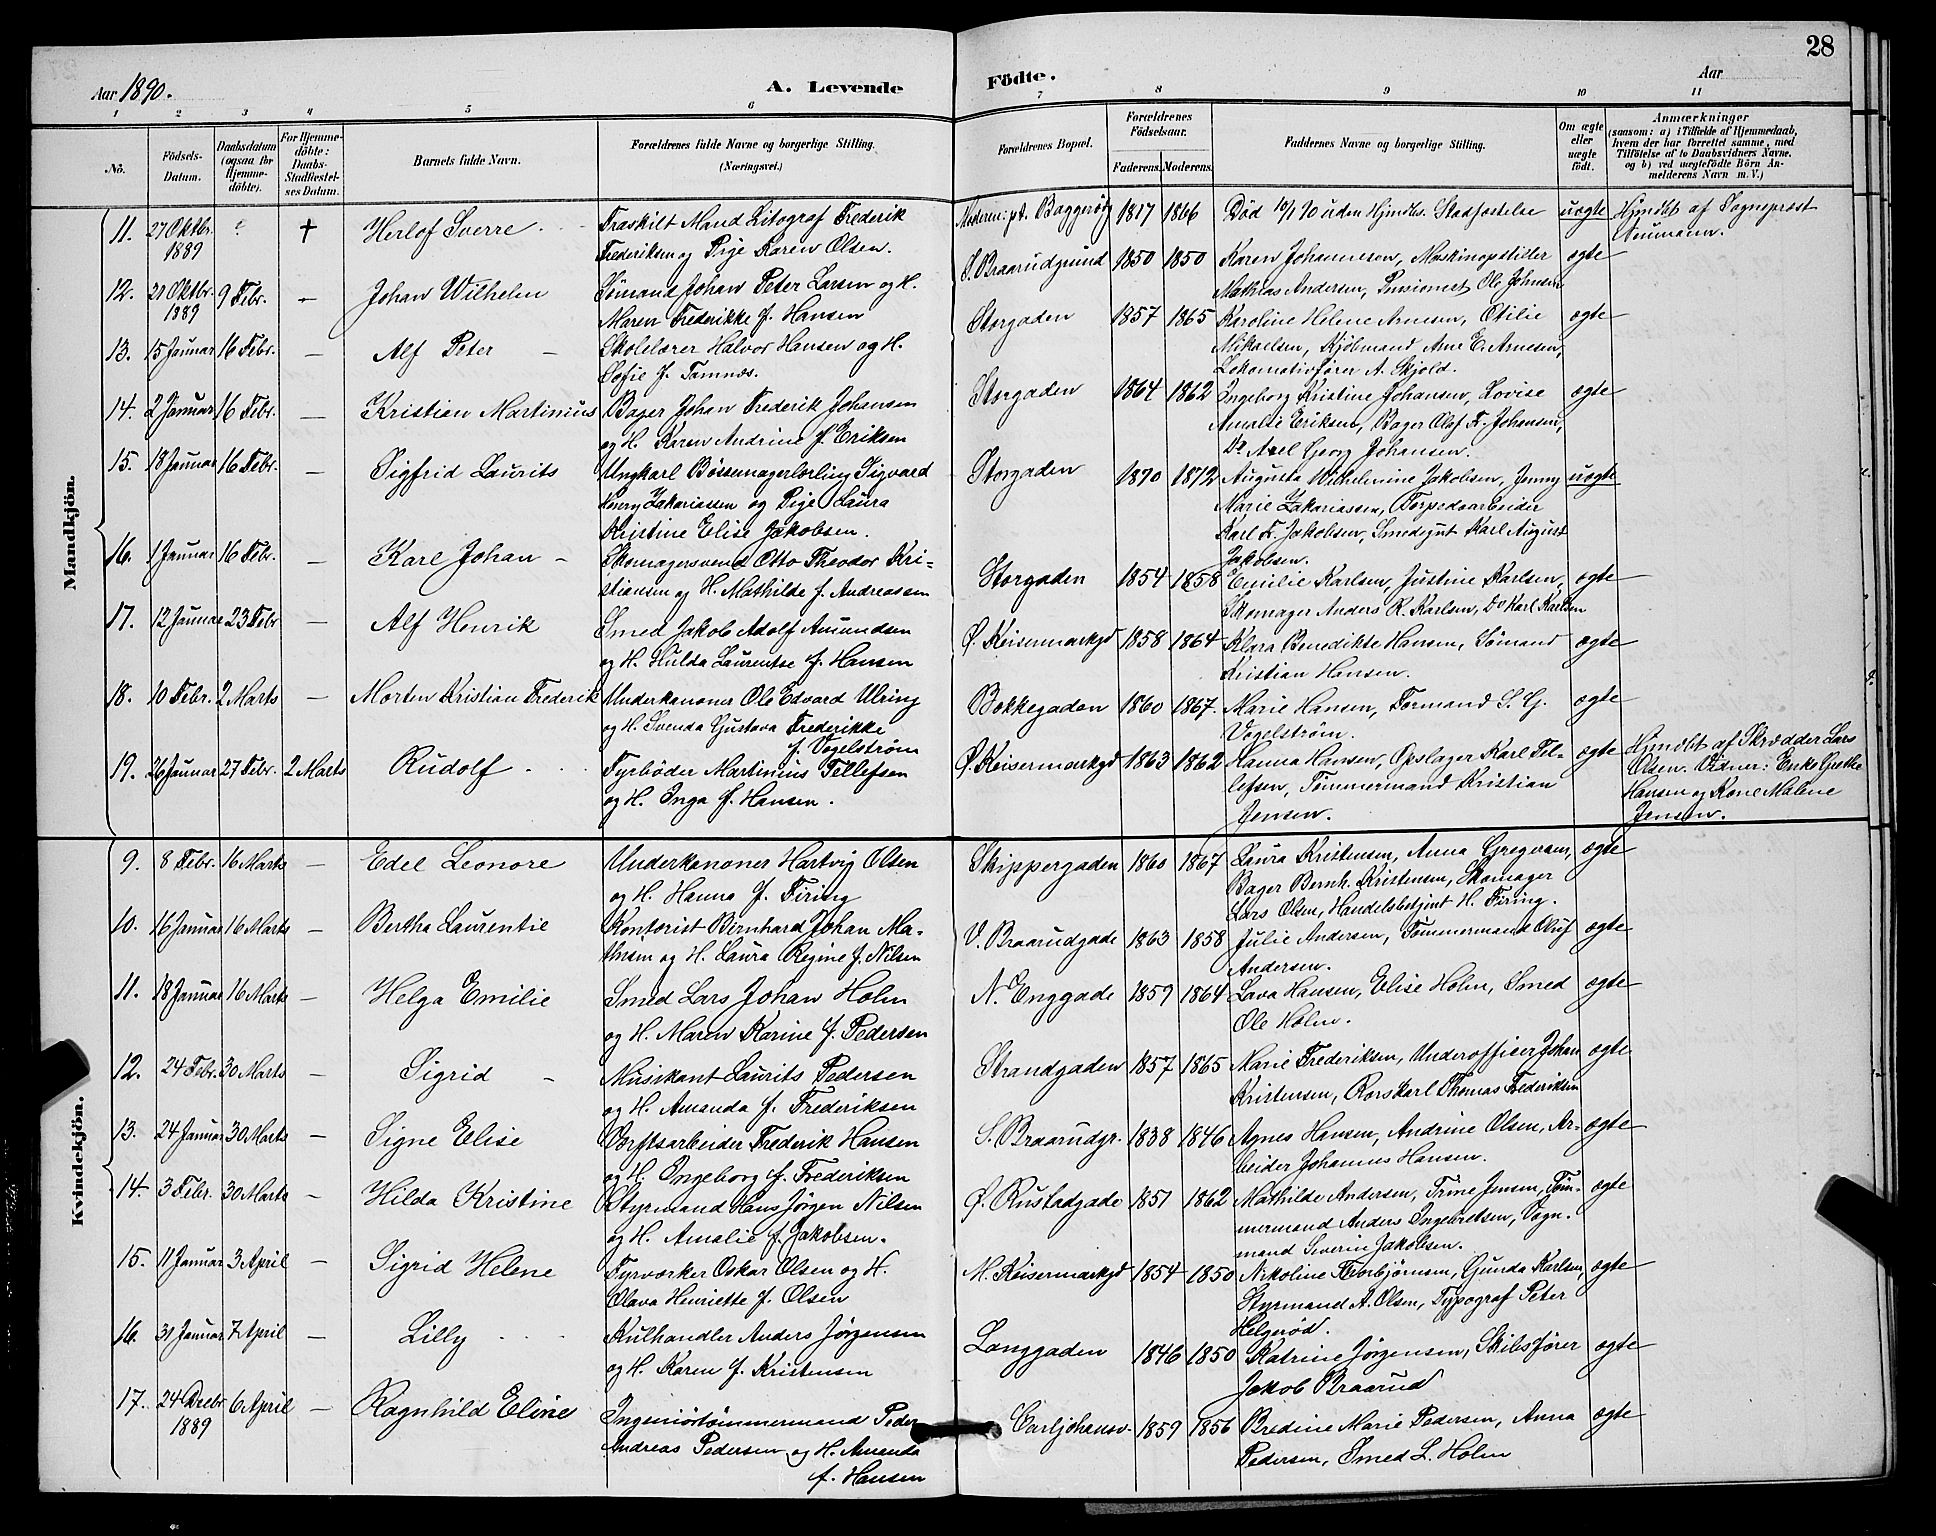 28
Aar 1890.
A. Levende
Födte.
Aar
1 2 3 4 5 6 7 8 9 10 11
No.
Födsels-
Datum.
Daabsdatum
(ogsaa for
Hjemme-
döbte).
For Hjemme-
döbte:
Daabs-
Stadfæstel-
ses Datum.
Barnets fulde Navn.
Forældrenes fulde Navne og borgerlige Stilling
(Næringsvei.)
Forældrenes Bopæl.
Forældrenes
Födselsaar.
Faderens. Moderens.
Faddernes Navne og borgerlige Stilling.
Om ægte
eller
uægte
födt.
Anmærkninger
(saasom: a) i Tilfælde af Hjemmedaab,
hvem der har forrettet samme, med
Tilföielse af to Daabsvidners Navne,
og b) ved uægtefödte Börn An-
melderens Navn m. V.)
Mandkjön.
11. 27 Oktbr. 1889 † Herlof Sverre
Fraskilt Mand Litograf Frederik
Frederiksen og Pige Karen Olsen.
Moderen: pt. Baggerød 1866 Død 10/1 90 uden Hjmdbs. Stadfæstelse uægte
Hjmdbt af Sogneprest
Neumann.
12. 21 Oktbr. 1889 9 Febr. – Johan Wilhelm
Sømand Johan Peter Larsen og H.
Maren Frederikke f. Hansen
S. Braarudgrund 1850 1850 Karen Johannesen, Maskinopstiller ægte
Mathias Andersen, Pensionist Ole Johnsen
13. 15 Januar 16 Febr. – Alf Peter –
Skolelærer Halvor Hansen og H.
Sofie f. Tamnæs.
Storgaden 1857 1865 Karoline Helene Arnesen, Otilie ægte
Mikaelsen, Kjöbmand Arne E. Arnesen,
Lokomotivfører A. Skjold.
14. 2 Januar 16 Febr. – Kristian Martinius
Bager Johan Frederik Johansen
og H. Karen Andrine f. Eriksen
Storgaden 1864 1862 Ingeborg Kristine Johansen, Lovise ægte
Amalie Eriksen, Bager Olaf F. Johansen,
Do Axel Georg Johansen.
15. 18 Januar 16 Febr. – Sigfrid Laurits
Ungkarl Bøssemagerlærling Sigvard
Henry Zakariassen og Pige Laura
Kristine Elise Jakobsen.
Storgaden 1870 1872 Augusta Wilhelmine Jakobsen, Jenny uægte
Marie Zakariassen, Torpedoarbeider
Karl F. Jakobsen, Smedegut Karl August
Jakobsen.
16. 1 Januar 16 Febr. – Karl Johan –
Skomagersvend Otto Theodor Kri-
stiansen og H. Mathilde f. Andreassen
Storgaden 1854 1858 Emilie Karlsen, Justine Karlsen, ægte
Skomager Anders R. Karlsen, Do Karl Karlsen
17. 12 Januar 23 Febr – Alf Henrik
Smed Jakob Adolf Amundsen
og H. Hulda Laurentse f. Hansen
Ø. Keisermarkgd 1858 1864 Klara Benedikte Hansen, Sømand ægte
Kristian Hansen.
18. 10 Febr. 2 Marts – Morten Kristian Frederik
Underkanoner Ole Edvard Ulring
og H. Svenda Gustava Frederikke
f. Vogelstrøm
Bokkegaden 1860 1867. Marie Hansen, Formand S. G. ægte
Vogelstrøm.
19. 26 Januar 27 Febr. 2 Marts Rudolf
Fyrbøder Martinius Tellefsen
og H. Inga f. Hansen.
Ø. Keisermarkgd 1863 1862 Hanna Hansen, Opslager Karl Tel- ægte
lefsen, Tömmermand Kristian
Jensen.
Hjmdbt af Skrædder Lars
Olsen. Vidner: Enke Grethe
Hansen og Kone Malene
Jensen.
Kvindekjön.
9. 8 Febr. 16 Marts – Edel Leonore
Underkanoner Hartvig Olsen
og H. Hanna f. Firing
Skippergaden 1860 1867 Laura Kristensen, Anna ægte
Bager Bernh. Kristensen, Skomager
Lars Olsen, Handelsbetjent H. Firing.
10. 16 Januar 16 Marts – Bertha Laurentie
Kontorist Bernhard Johan Ma-
thisen og H. Laura Regine f. Nilsen
V. Braarudgade 1863 1858 Julie Andersen, Tømmermand Oluf ægte
Andersen.
11. 18 Januar 16 Marts – Helga Emilie
Smed Lars Johan Holm
og H. Maren Karine f. Pedersen
N. Enggade 1859 1864 Lava Hansen, Elise Holm, Smed ægte
Ole Holm.
12. 24 Febr. 30 Marts – Sigrid –
Musikant Laurits Pedersen
og H. Amanda f. Frederiksen
Strandgaden 1857 1865 Marie Frederiksen, Underofficer Johan ægte
Kristensen, Rorskarl Thomas Frederiksen
13. 24 Januar 30 Marts – Signe Elise
Værftsarbeider Frederik Hansen
og H. Ingeborg f. Frederiksen
S. Braarudgr. 1838 1846 Agnes Hansen, Andrine Olsen, Ar- ægte
beider Johannes Hansen.
14. 3 Febr. 30 Marts – Hilda Kristine
Styrmand Hans Jørgen Nilsen
og H. Amalie f. Jakobsen.
Ø. Rustadgade 1851 1862 Mathilde Andersen, Trine Jensen, Tøm- ægte
mermand Anders Ingebretsen, Vogn-
mand Severin Jakobsen.
15. 11 Januar 3 April – Sigrid Helene
Fyrvorker Oskar Olsen og H.
Olava Henriette f. Olsen
M. Keisermarkgd 1854 1850 Nikoline Thorbjørnsen, Gunda Karlsen, ægte
Styrmand A. Olsen, Typograf Peter
Helgerød.
16. 31 Januar 7 April – Lilly
Kulhandler Anders Jørgensen
og H. Karen f. Kristensen
Langgaden 1846 1850 Katrine Jørgensen, Skibsfører ægte
Jakob Braarud
17. 24 Decbr 1889 6 April – Ragnhild Eline
Ingeniørtömmermand Peder
Andreas Pedersen og H. Amanda
f. Hansen
Carljohansv. 1859 1856 Bredine Marie Pedersen, Anna ægte
Pedersen, Smed L. Holm